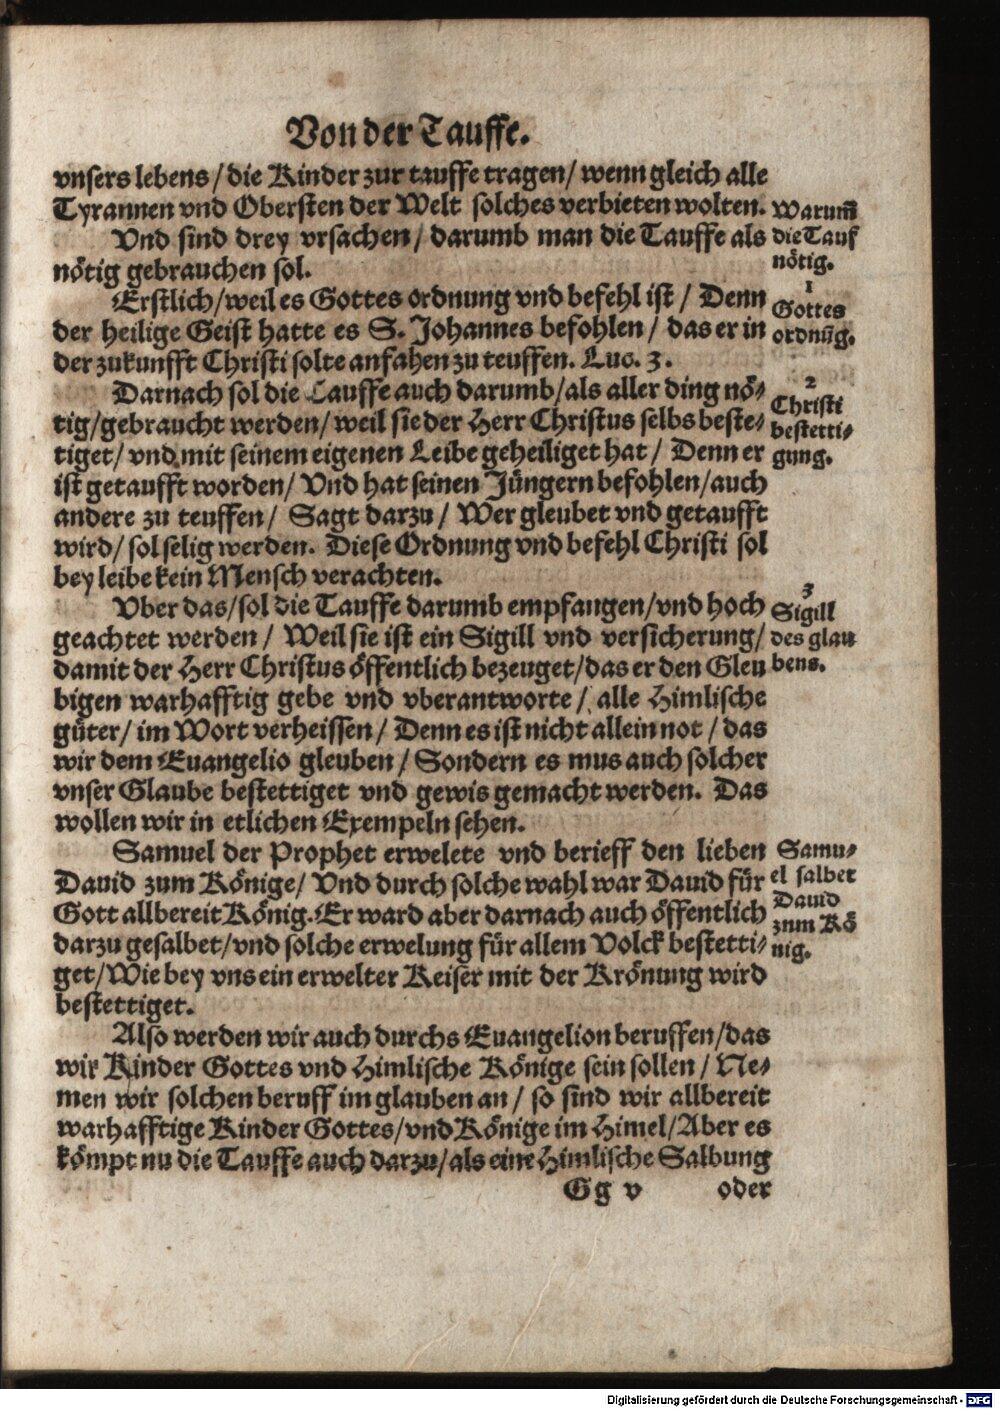 Von der Tauffe.
vnsers lebens / die Kinder zur tauffe tragen / wenn gleich alle
Tyrannen vnd Obersten der Welt solches verbieten wolten.
Vnd sind drey vrsachen / darumb man die Tauffe als
nötig gebrauchen sol.
Warum̃
die Tauf
nötig.
Erstlich / weil es Gottes ordnung vnd befehl ist / Denn
der heilige Geist hatte es S. Johannes befohlen / das er in
der zukunfft Christi solte anfahen zu teuffen. Luc. 3.
1
Gottes
ordnũg.
Darnach sol die Tauffe auch darumb / als aller ding nö-
tig / gebraucht werden / weil sie der Herr Christus selbs beste-
tiget / vnd mit seinem eigenen Leibe geheiliget hat / Denn er
ist getaufft worden / Vnd hat seinen Jüngern befohlen / auch
andere zu teuffen / Sagt darzu / Wer gleubet vnd getaufft
wird / sol selig werden. Diese Ordnung vnd befehl Christi sol
bey leibe kein Mensch verachten.
2
Christi
bestetti-
gung.
Vber das / sol die Tauffe darumb empfangen / vnd hoch
geachtet werden / Weil sie ist ein Sigill vnd versicherung /
damit der Herr Christus öffentlich bezeuget / das er den Gleu
bigen warhafftig gebe vnd vberantworte / alle Himlische
güter / im Wort verheissen / Denn es ist nicht allein not / das
wir dem Euangelio gleuben / Sondern es mus auch solcher
vnser Glaube bestettiget vnd gewis gemacht werden. Das
wollen wir in etlichen Exempeln sehen.
3
Sigill
des glau
bens.
Samuel der Prophet erwelete vnd berieff den lieben
Dauid zum Könige / Vnd durch solche wahl war Dauid für
Gott allbereit König. Er ward aber darnach auch öffentlich
darzu gesalbet / vnd solche erwelung für allem Volck bestetti-
get / Wie bey vns ein erwelter Keiser mit der Krönung wird
bestettiget.
Samu-
el salbet
Dauid
zum Kö
nig.
Also werden wir auch durchs Euangelion beruffen / das
wir Kinder Gottes vnd Himlische Könige sein sollen / Ne-
men wir solchen beruff im glauben an / so sind wir allbereit
warhafftige Kinder Gottes / vnd Könige im Himel / Aber es
kömpt nu die Tauffe auch darzu / als eine Himlische Salbung
Gg v
oder
Digitalisierung gefördert durch die Deutsche Forschungsgemeinschaft - DFG